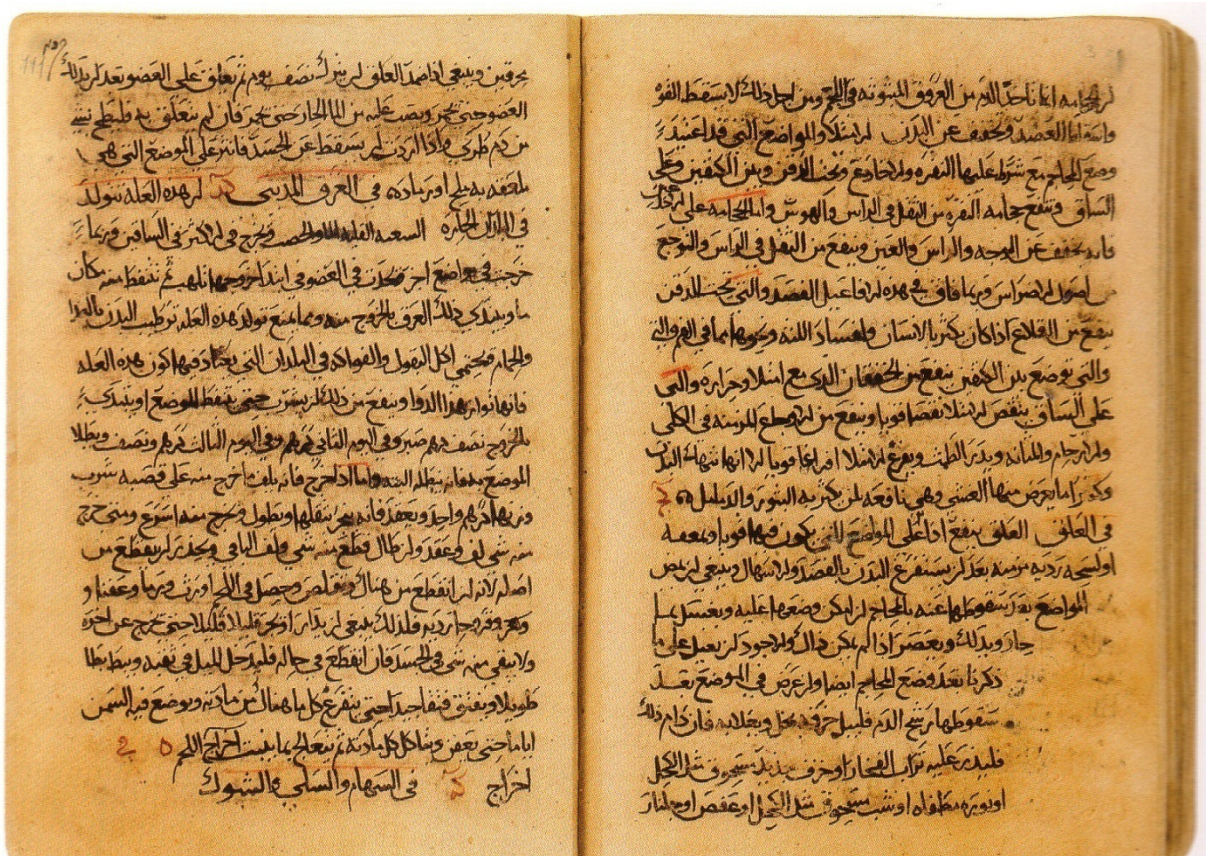 الحجامه انما تاخذ الدم من العروق المبثوثه في اللحم ومن اجل ذلك لا تسقط القوه
واسقاط الفصد وتخفف عن البدن الامتلا والمواضع التي قد اعتيد
وضع المحاجم مع شرط عليها النقره والاخادع وتحت الذقن وبين الكتفين وعلى
الساق وتنفع حجامه النقره من الثقل في الراس والهوس واما الحجامه على الاخدعين
فانه يخفف عن الوجه والراس والعين وينفع من الثقل في الراس والتوجع
اصول الاضراس وربما فاق في هذه الافاعيل الفصد والتي تحت الذقن
ينفع من القلاع اذا كان يكثر بالانسان ولفساد اللثه ونحوها مما في الفم والتي
والتي توضع بين الكتفين ينفع من الخفقان الذي مع امتلا وحراره والتي
على الساق ينقص الامتلا نقصا قويا وينفع من الاوجاع المزمنه في الكلى
والارحام والمثانه ويدر الطمث ويفرغ الامتلا افراغا قويا الا انها تنهك البدن
وكثيرا ما يعرض منها الغشي وهي نافعه لمن يكثر به البثور والدماميل
في العلق العلق ينفع اذا على المواضع التي يكون فيها قوبا او سعفه
او سحجه رديه مزمنه بعد ان يستفرغ البدن بالفصد والاسهال وينبغي ان يمص
المواضع بعد سقوطها عنه بالمحاجم ان امكن وضعها عليه ويغسل بما
حار ويدلك ويعصر اذا لم يمكن ذلك والاجود ان يعمل على ما
ذكرنا بعد وضع المحاجم ايضا وان عرض في الموضع بعد
سقوطها رشح الدم فليبل خرقه بخل ويجعل به فان دام ذلك
فليذر عليه تراب الفخار او خزف جديد مسحوق مثل الكحل
او نوره مطفاه او شب مسحوق مثل الكحل او عفص او جلنار
محرقين وينبغي اذا صيد العلق ان يترك نصف يوم ثم يعلق على العضو بعد ان يدلك
العضو حتى يحمر ويصب عليه من الما الحار حتى يحمر فان لم يتعلق به فليطلخ بشي
من دم طري واذا اردت ان يسقط عن الجسد فانثر على الموضع التي هي
ملتفقه به ملح او رماد في العرق المديني ان هذه العله يتولد
في البلدان الحاره القليله ويخرج في الاكثر في الساقين وربما
خرجت في مواضع اخر ويحدث في العضو في ابتدا خروجها تلهب ثم يتنفط منه مكان
ما ويبتدي ذلك العرق بالخروج منه ومما يمنع تولد هذه العله ترطيب البدن بالغذا
والحمام ويحتمي اكل البقول والفواكه في البلدان التي يعتاد فيها كون هذه العله
فانها تتولد بهذا الدوا وينفع من ذلك ان يشرب حين يتنفط الموضع او يبتدي
بالخروج نصف درهم صبر وفي اليوم الثاني درهم وفي اليوم الثالث درهم ونصف ويطلا
الموضع به فانه يبطله البته واما اذا خرج فانه يلف ما خرج منه على قصبه اسرب
وزنها درهم واحد ويعقد فانه يجر بثقلها ويطول ويخرج منه اسرع ومتى خرج
منه شي لف وعقد وان طال قطع منه شي ولف الباقي ويحذر ان يقطع من
اصله لانه ان انقطع من هناك وتقلص وحصل في اللحم اورث ورما وعفنا و
وقروحا رديه فلذلك ينبغي ان يدارا ويجر قليلا قليلا حتى يخرج عن اخره
ولا يبقى منه شي في الجسد فان انقطع في حال فليدخل الميل في ثقبه ويبط بطا
طويلا ويفتق فتقا جيدا حتى يتفرغ كل ما هناك من مادته ويوضع فيه السمن
اياما حتى يعفن ويتاكل كل مادته ثم يعالج بما ينبت اخراج اللحم
اخراج في السهام والسلى والشوك